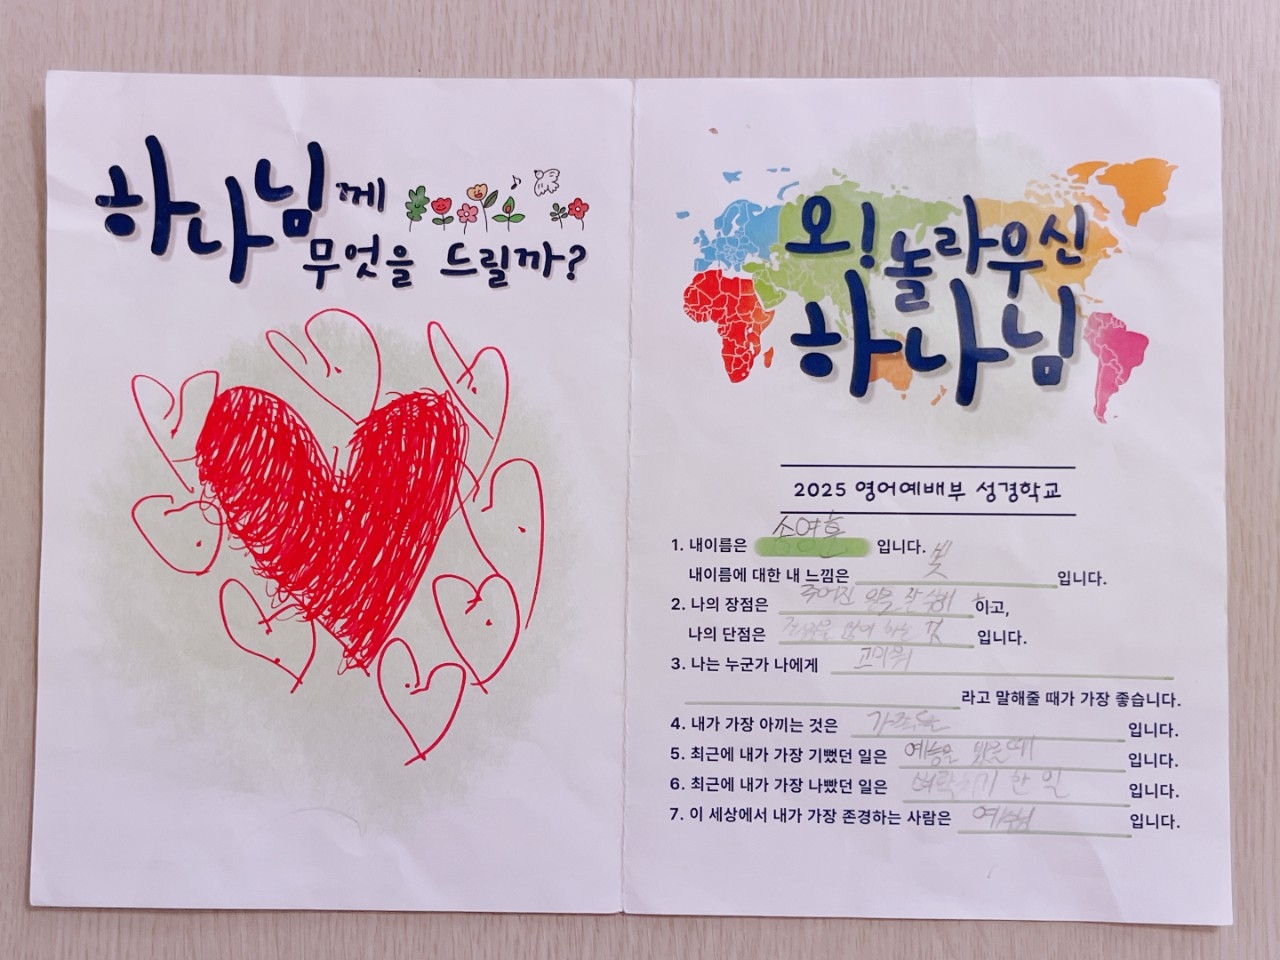 하나님께
무엇을 드릴까?
오! 놀라우신
하나님
2025 영어예배부 성경학교
1. 내이름은 입니다.
내이름에 대한 내 느낌은 빛 입니다.
2. 나의 장점은 주어진 일을 잘 이고,
나의 단점은 많이 하는 것 입니다.
3. 나는 누군가 나에게 고마워
라고 말해줄 때가 가장 좋습니다.
4. 내가 가장 아끼는 것은 가족들 입니다.
5. 최근에 내가 가장 기뻤던 일은 예능을 봤을때 입니다.
6. 최근에 내가 가장 나빴던 일은 벼락치기 한 일 입니다.
7. 이 세상에서 내가 가장 존경하는 사람은 예수님 입니다.